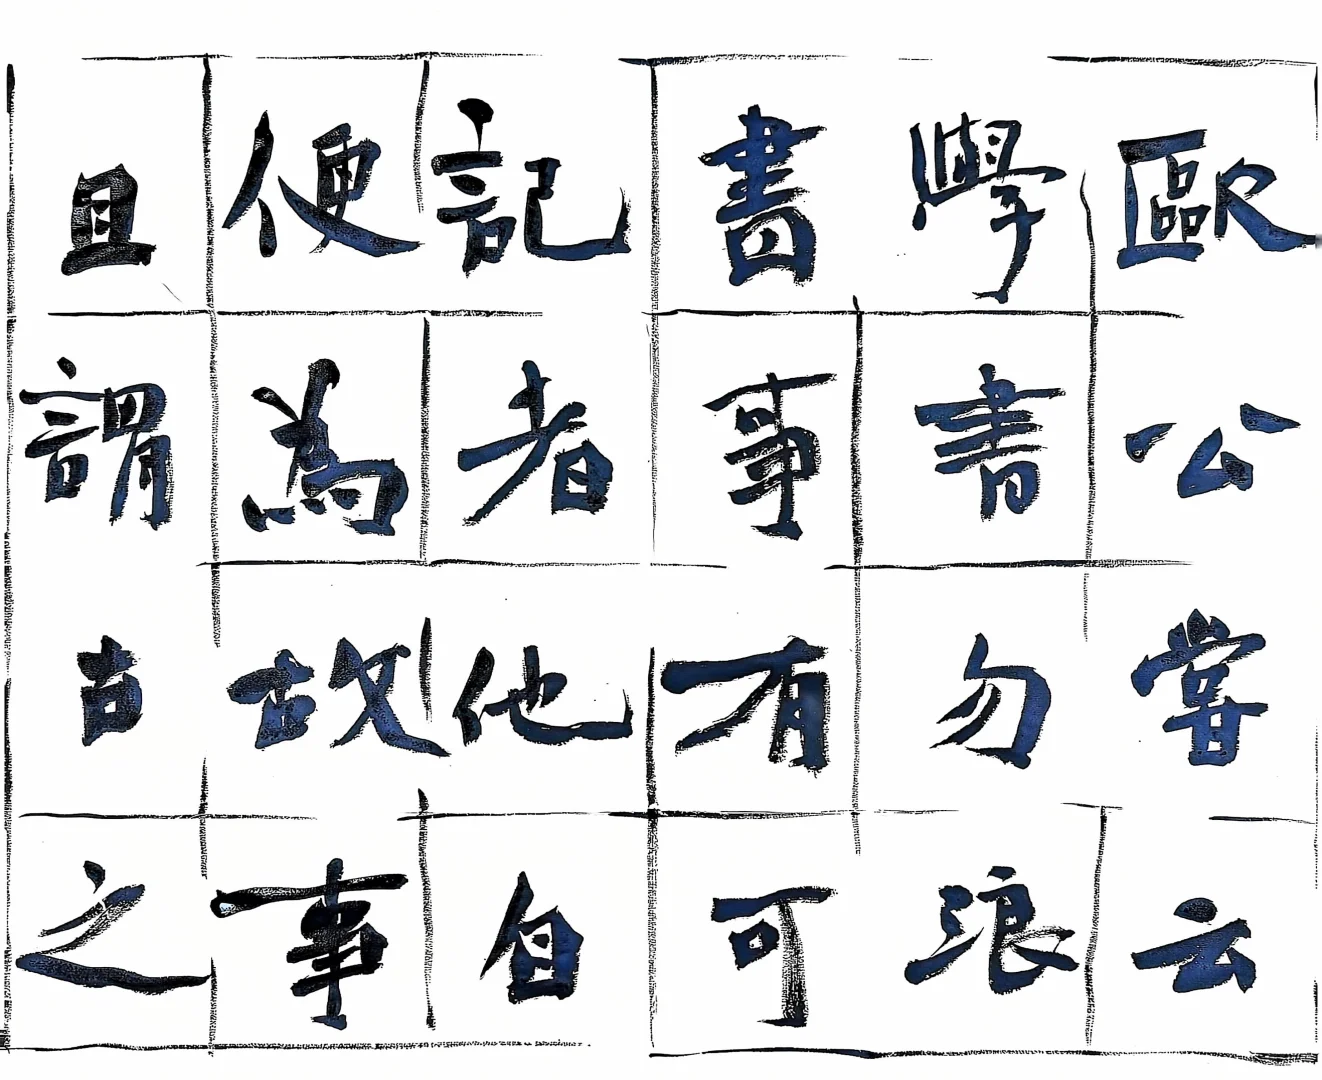 歐公嘗云
學書勿浪
書事有可
記者他自
便為故事
且謂古之